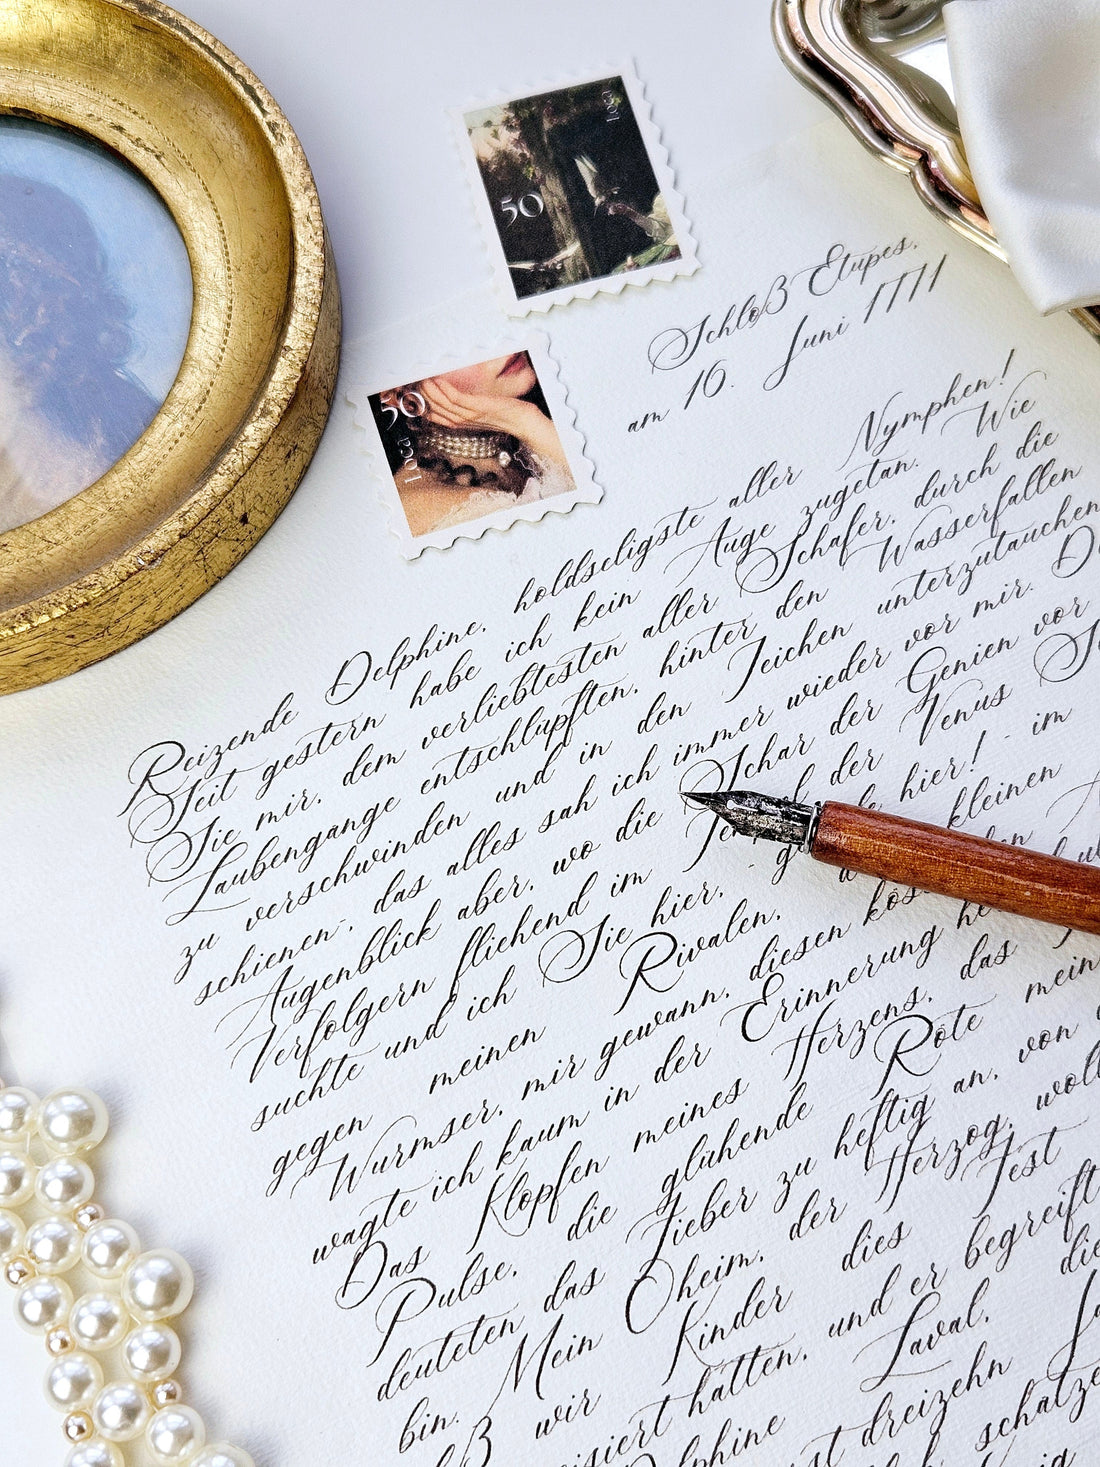 50
Schloß Etupes,
am 10. Juni 1771
50
Reizende Delphine, holdseligste aller Nymphen!
Seit gestern habe ich kein Auge zugetan. Wie
Sie mir, dem verliebtesten aller Schäfer, durch die
Laubengänge entschlüpften, hinter den Wasserfällen
zu verschwinden und in den Teichen unterzutauchen
schienen, das alles sah ich immer wieder vor mir.
Augenblick aber, wo die Schar der Genien vor
Verfolgern fliehend im der Venus
suchte und ich Sie hier, hier! - im
gegen meinen Rivalen, kleinen
Wurmser, mir gewann, diesen
wagte ich kaum in der Erinnerung
Das Klopfen meines Herzens, das
Pulse, die glühende Röte mein
deuteten das Fieber zu heftig an, von
bin. Mein Oheim, der Herzog,
wir Kinder dies Fest
hatten, und er begreift
Delphine Laval, die
dreizehn